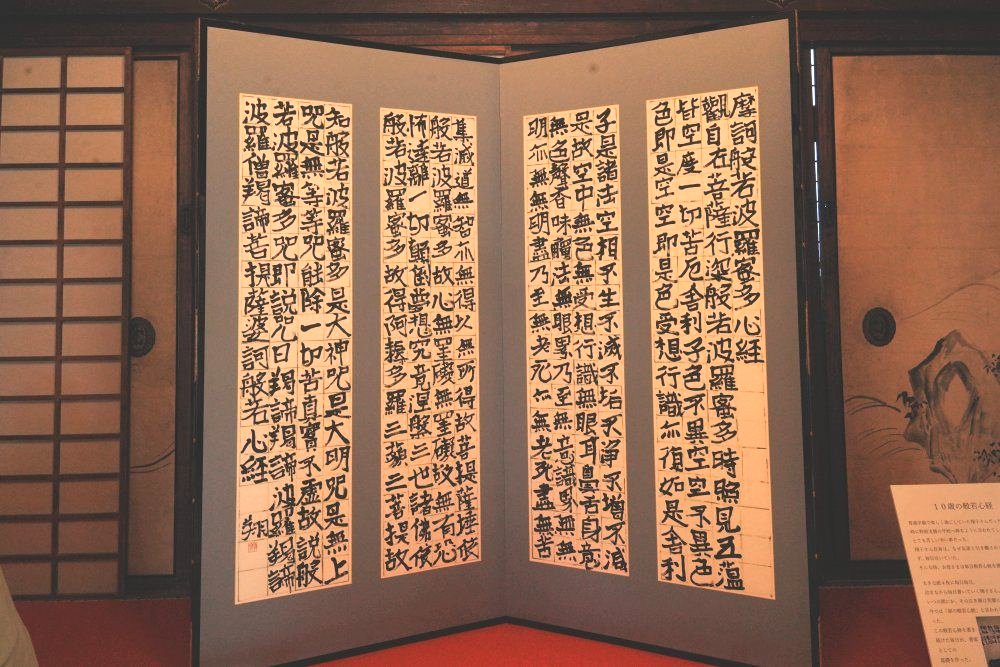 摩訶般若波羅蜜多心経
觀自在菩薩行深般若波羅蜜多時照見五蘊
皆空度一切苦厄舍利子色不異空空不異色
色即是空空即是色受想行識亦復如是舎利
子是諸法空相不生不滅不垢不浄不増不減
是故空中無色無受想行識無眼耳鼻舌身意
無色聲香味觸法無眼界乃至無意識界無無
明亦無無明盡乃至無老死亦無老死盡無苦
集滅道無智亦無得以無所得故菩提薩埵依
般若波羅蜜多故心無罣礙無罣礙故無有恐
怖遠離一切顛倒夢想究竟涅槃三世諸佛依
般若波羅蜜多故得阿耨多羅三藐三菩提故
知般若波羅蜜多是大神呪是大明呪是無上
呪是無等等呪能除一切苦真實不虚故説般
若波羅蜜多呪即説呪曰羯諦羯諦波羅羯諦
波羅僧羯諦菩提薩婆訶般若心経
翔
10歳の般若心経